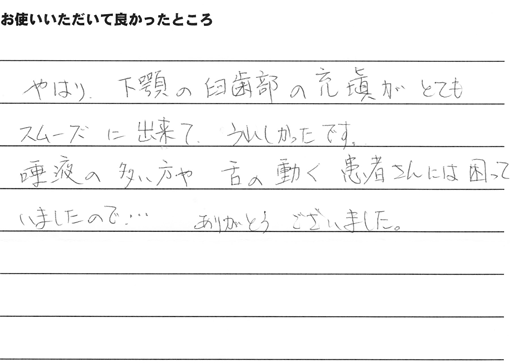 お使いいただいて良かったところ
やはり、下顎の臼歯部の充填がとても
スムーズに出来て、うれしかったです。
唾液の多い方や舌の動く患者さんには困って
いましたので… ありがとうございました。